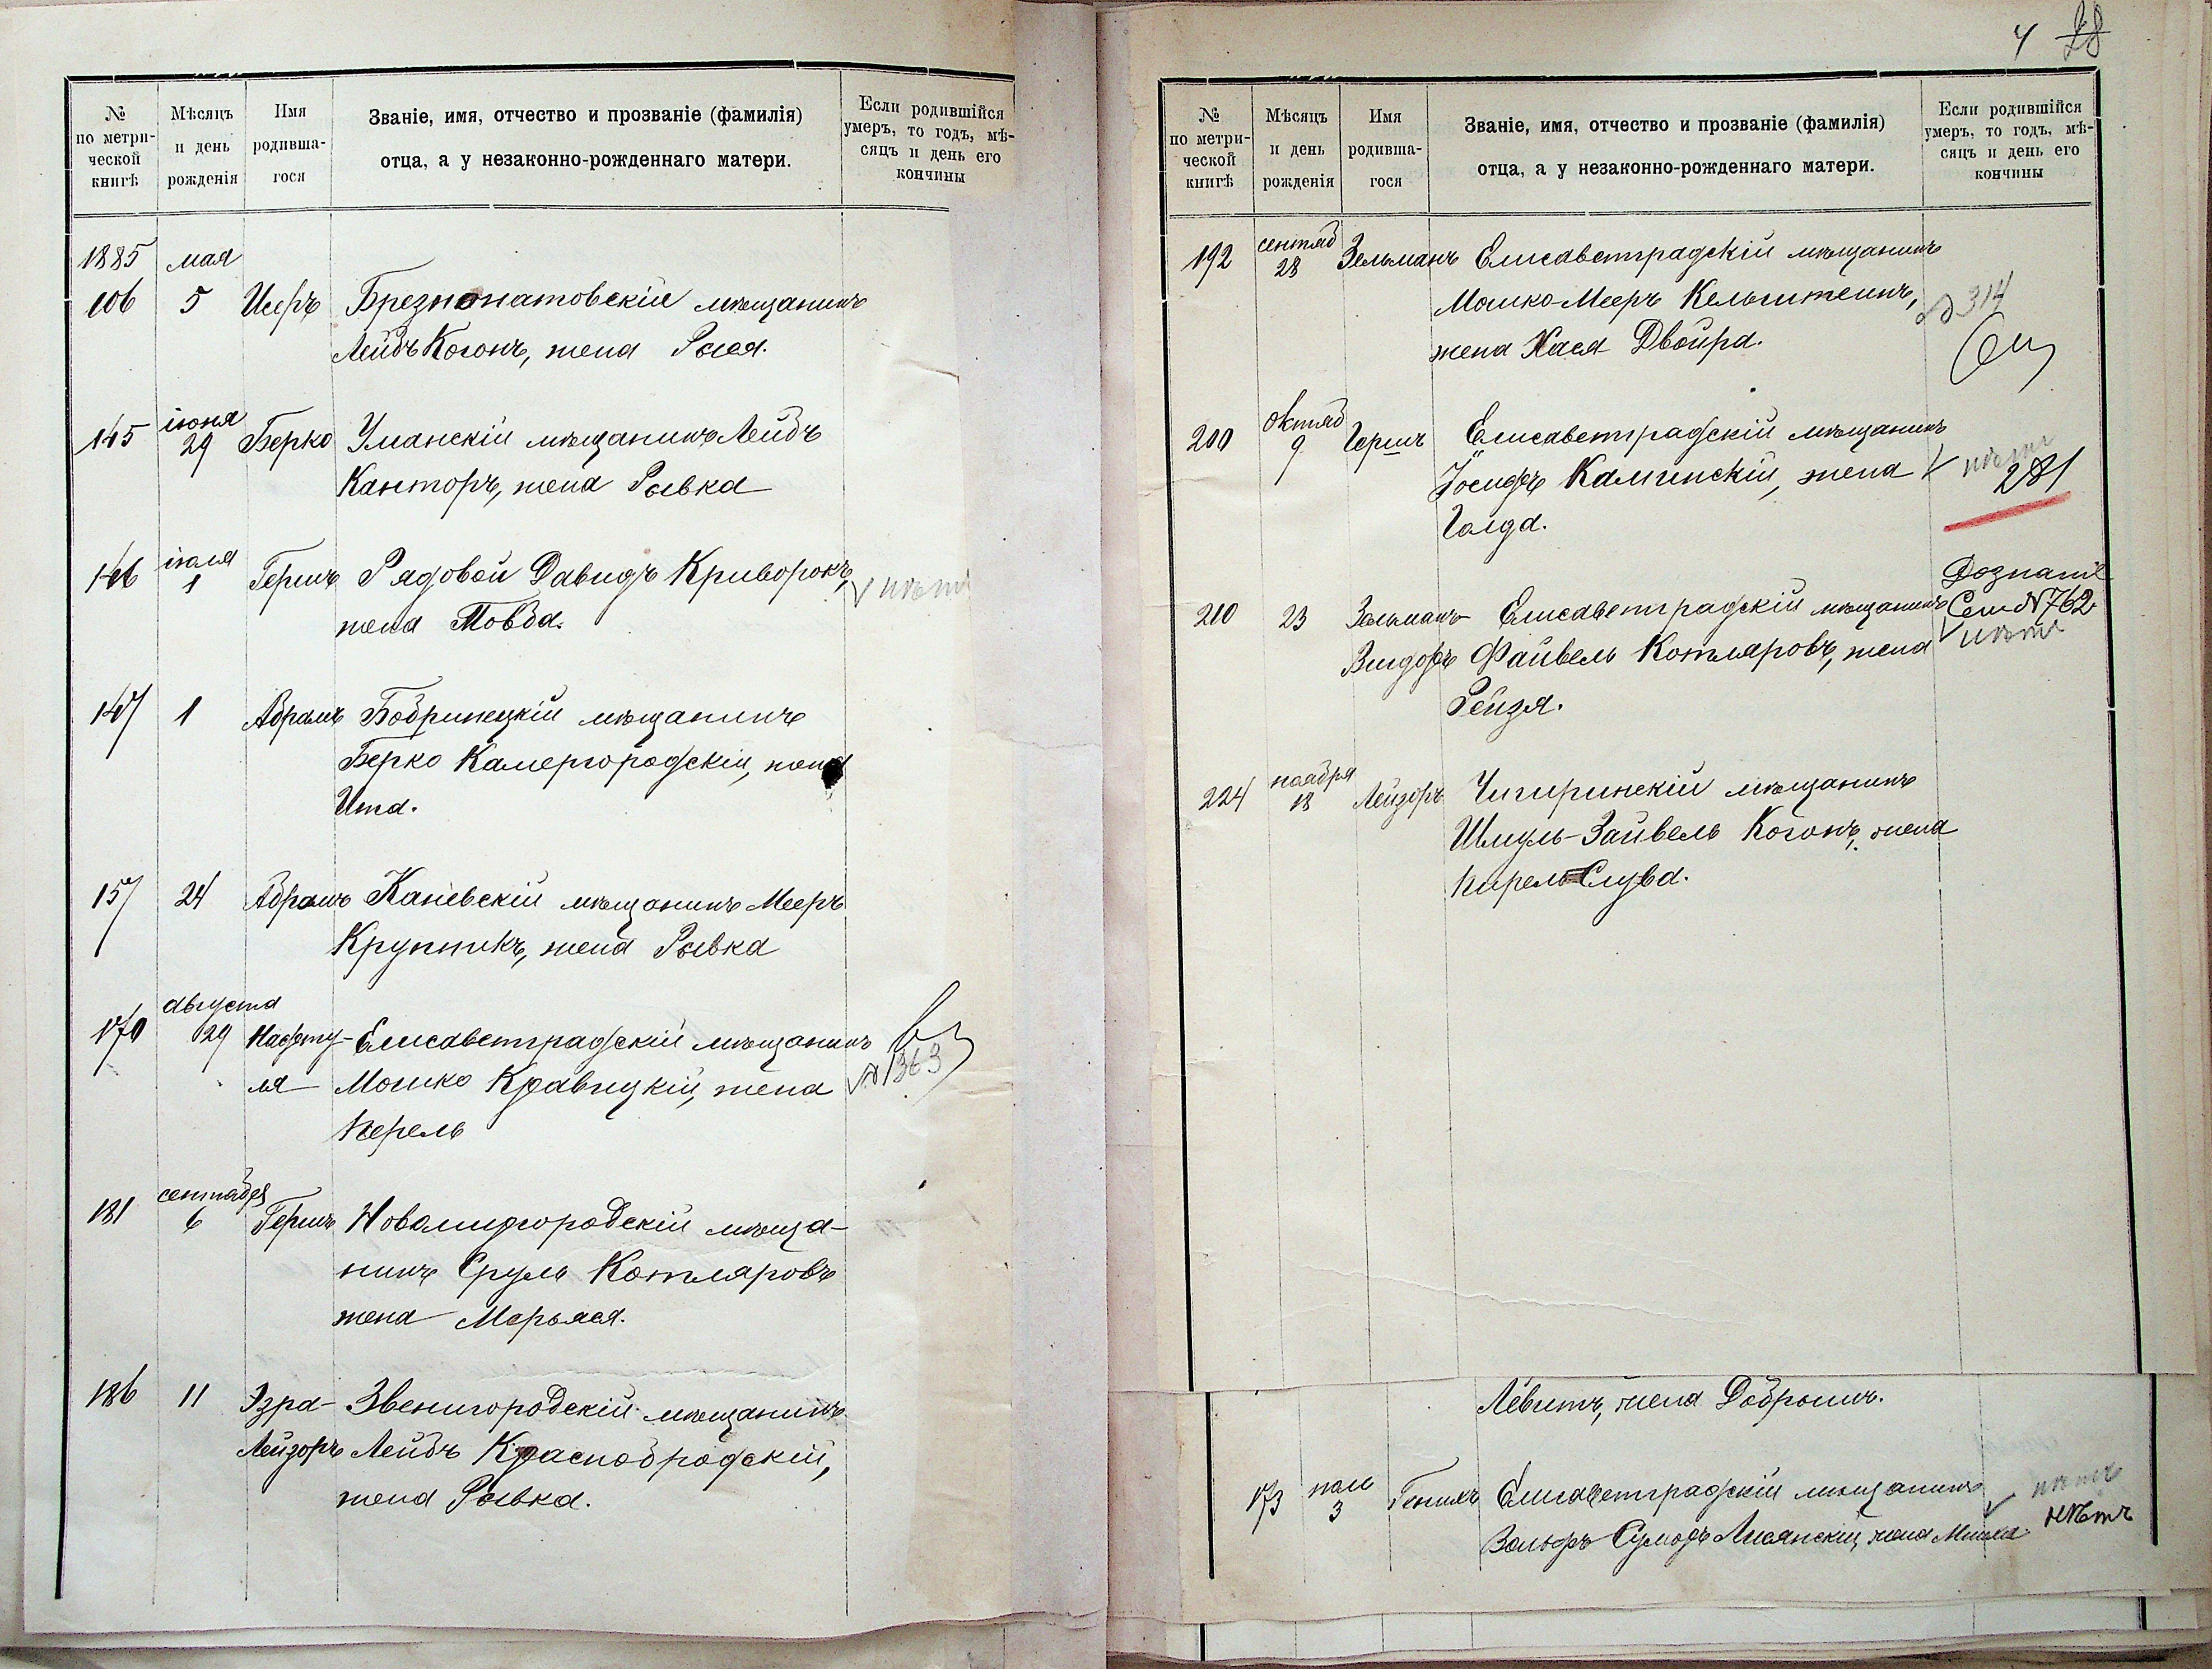 № по метри-ческой книгѣ
Мѣсяцъ и день рожденія
Имя родивша-гося
Званіе, имя, отчество и прозваніе (фамилія)
отца, а у незаконно-рожденнаго матери.
Если родившійся
умеръ, то годъ, мѣ-
сяцъ и день его
кончины
1885 мая
106 5 Исеръ Брезнопатовскій мѣщанинъ
Лейбъ Когонъ, жена Рося.
145 іюня 29 Берко Уманскій мѣщанинъ Лейбъ
Канторъ, жена Рывка
146 іюля 1 Гершъ Рядовой Давидъ Криворокъ,
жена Товба. нѣтъ
147 1 Абрамъ Бобринецкій мѣщанинъ
Берко Камергородскій, жена
Ита.
157 24 Абрамъ Каневскій мѣщанинъ Мееръ
Крупникъ, жена Рывка
170 августа 29 Нафту- Елисаветградскій мѣщанинъ
ля Мошко Кравицкій, жена №1363
Перель
181 сентября 6 Гершъ Новомиргородскій мѣща-
нинъ Сруль Котляровъ
жена Марьяся.
186 11 Эзра- Звенигородскій мѣщанинъ
Лейзоръ Лейбъ Краснобродскій,
жена Рывка.
4 28
№ по метри-ческой книгѣ
Мѣсяцъ и день рожденія
Имя родивша-гося
Званіе, имя, отчество и прозваніе (фамилія)
отца, а у незаконно-рожденнаго матери.
Если родившійся
умеръ, то годъ, мѣ-
сяцъ и день его
кончины
192 сентяб 28 Зельманъ Елисаветградскій мѣщанинъ
Мошко-Мееръ Кельштеинъ, 314
жена Хася Двойра. Сем
200 октяб 9 Гершъ Елисаветградскій мѣщанинъ
Іосифъ Калминскій, жена нѣтъ 281
Голда.
Дознаніе
210 23 Зельманъ Елисаветградскій мѣщанинъ Сем №762
Вигдоръ Файвель Котляровъ, жена нѣтъ
Рейзя.
224 ноября 18 Лейзоръ Чигиринскій мѣщанинъ
Шмуль-Зайвель Когонъ, жена
Слува.
Левитъ, жена Добрышъ.
173 3 Генихъ Елисаветградскій мѣщанинъ нѣтъ
Вольфъ Лисянскій, жена нѣтъ